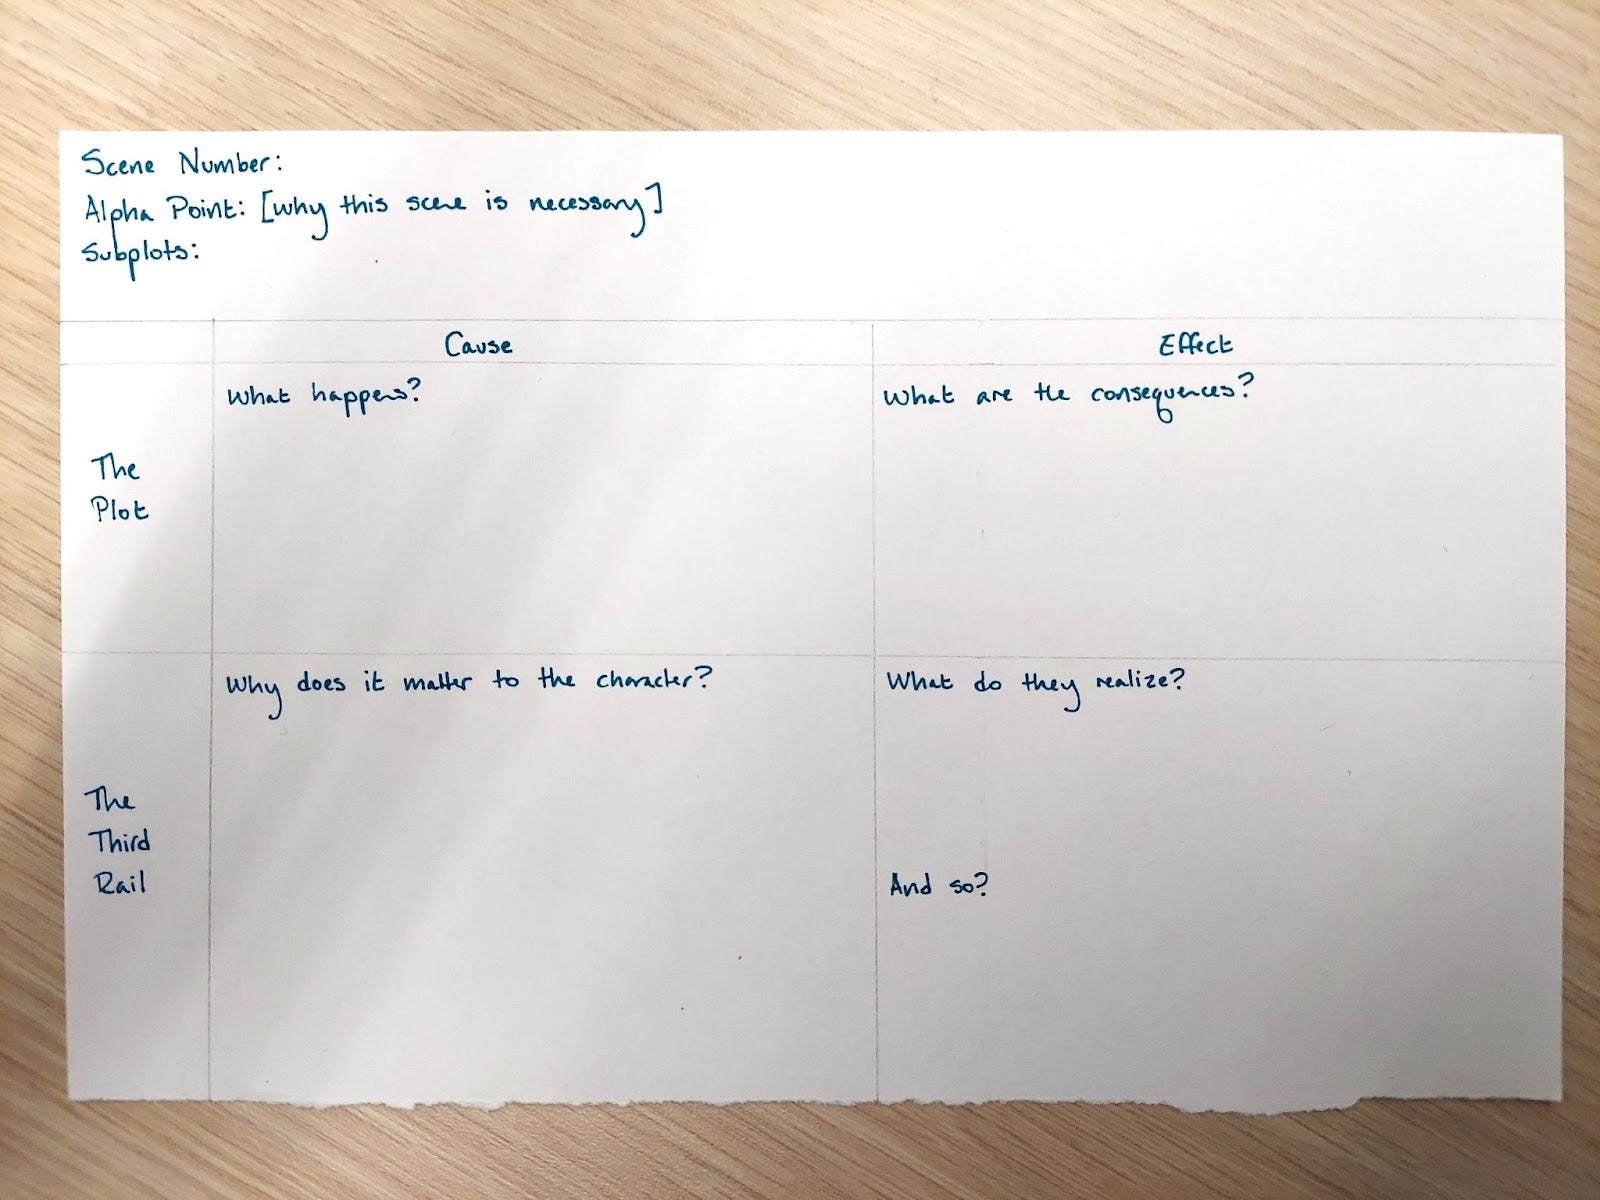 Scene Number:
Alpha Point: [why this scene is necessary]
Subplots:
Cause
Effect
The
Plot
What happens?
What are the consequences?
The
Third
Rail
Why does it matter to the character?
What do they realize?
And so?